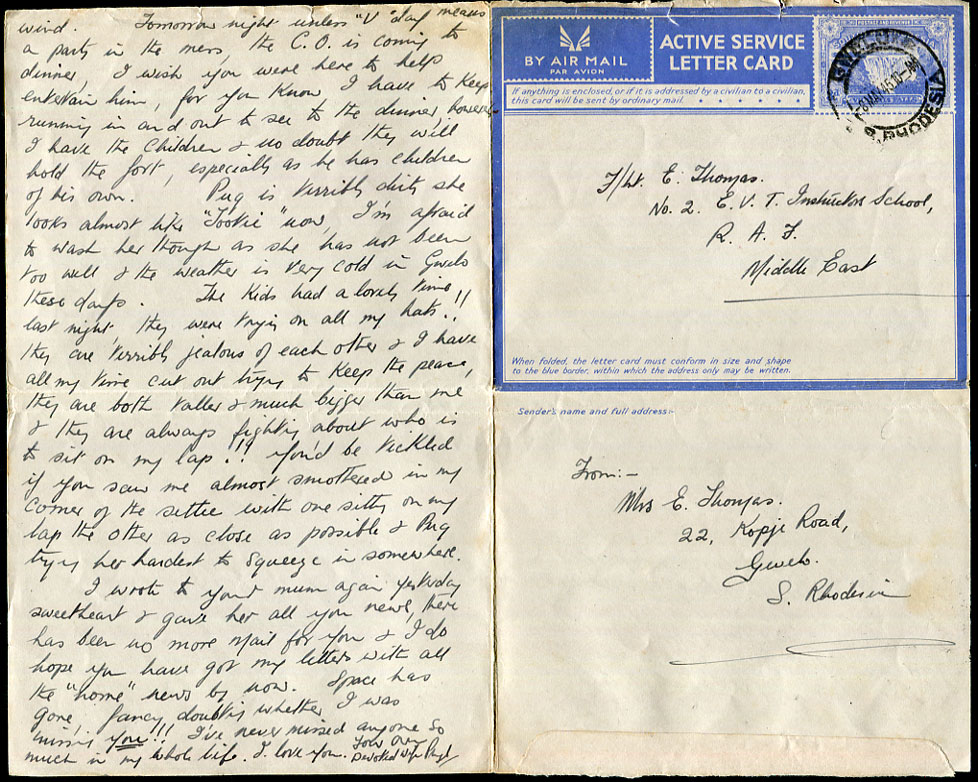 wind. Tomorrow night unless "V" day means
a party in the mess, the C.O. is coming to
dinner, I wish you were here to help
entertain him, for you know I have to keep
running in and out to see to the dinner, however
I have the children & no doubt they will
hold the fort, especially as he has children
of his own. Pug is terribly dirty she
looks almost like "Tookie" now, I'm afraid
to wash her though as she has not been
too well & the weather is very cold in Gwelo
these days. The Kids had a lovely time
last night, they were tryig on all my hats!!
they are terribly jealous of each other & I have
all my time cut out tryg to keep the peace,
they are both taller & much bigger than me
& they are always fightig about who is
to sit on my lap!!! You'd be tickled
if you saw me almost smothered in my
corner of the settie with one sittig on my
lap the other as close as possible & Pug
tryig her hardest to squeeze in somewhere.
I wrote to your mum again yesterday
sweetheart & gave her all you news, there
has been no more mail for you & I do
hope you have got my letters with all
the "home" news by now. Space has
gone, fancy doubtig whether I was
missig you!!! I've never missed anyone so
much in my whole life. I love you. Your own
Devoted Wife
BY AIR MAIL
PAR AVION
ACTIVE SERVICE
LETTER CARD
If anything is enclosed, or if it is addressed by a civilian to a civilian,
this card will be sent by ordinary mail.
POSTAGE AND REVENUE
GWELO
S. RHODESIA
F/Lt. E. Thomas.
No. 2. E. V. T. Instructors School,
R. A. F.
Middle East
When folded, the letter card must conform in size and shape
to the blue border, within which the address only may be written.
Sender's name and full address:-
From:-
Mrs E. Thomas.
22, Kopje Road,
Gwelo.
S. Rhodesia